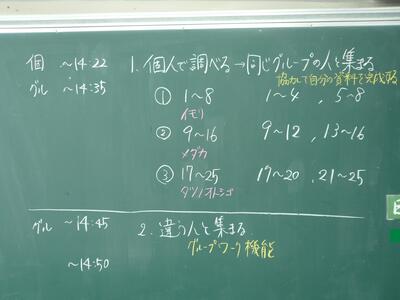 個 ～14:22 1. 個人で調べる→同じグループの人と集まる
協力して自分の資料を完成する
グル ～14:35
① 1～8 1～4, 5～8
イモリ
② 9～16 9～12, 13～16
メダカ
③ 17～25 17～20, 21～25
タツノオトシゴ
グル ～14:45 2. 違う人と集まる
グループワーク機能
～14:50